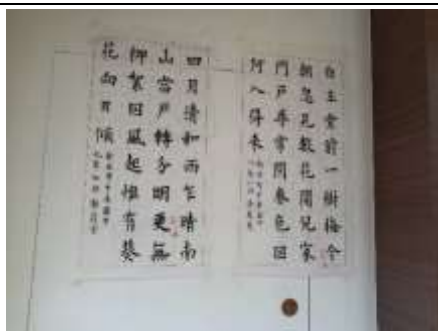 白玉堂前一樹梅今
朝忽見數花開兒家
門戶尋常閉春色因
何入得來
四月清和雨乍晴南
山當戶轉分明更無
柳絮因風起惟有葵
花向日傾